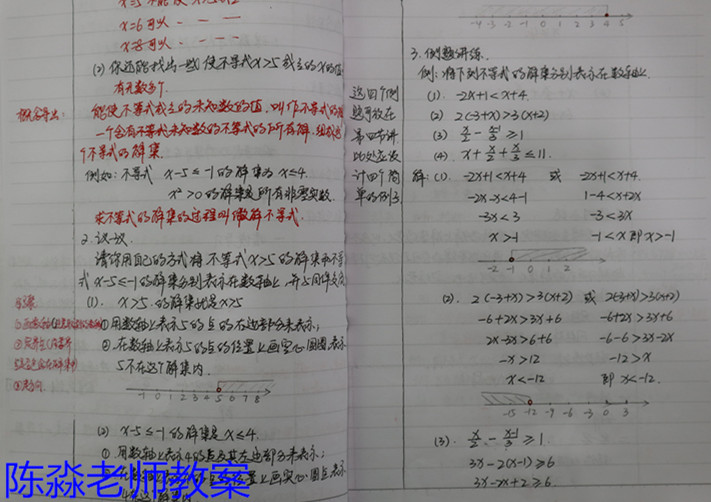 x=6可以
x=8可以
(2) 你还能找出一些使不等式x>5成立的x的值
有无数多个.
概念导出:
能使不等式成立的未知数的值,叫作不等式的解
一个含有不等式未知数的不等式的所有解,组成这
个不等式的解集.
例如:不等式 x-5≤-1的解集为 x≤4.
x²>0的解集是所有非零实数.
求不等式的解集的过程叫做解不等式.
2. 议一议.
请你用自己的方式将不等式x>5的解集和不等
式 x-5≤-1的解集分别表示在数轴上,并与同伴交流
(1). x>5.的解集就是x>5
①用数轴上表示5的点的右边部分来表示;
②.在数轴上表示5的点的位置上画空心圆圈,表示
5不在这个解集内.
-1 0 1 2 3 4 5 6 7 8
(2) x-5≤-1的解集是x≤4.
①.用数轴上表示4的点及其左边部分来表示;
位置上画实心圆点表示
陈淼老师教案
这四个例
题可放在
第四节讲
此处应设
计四个简
单的例子
-4 -3 -2 -1 0 1 2 3 4 5
3. 例题讲练.
例:将下列不等式的解集分别表示在数轴上.
(1). -2x+1<x+4.
(2) 2(-3+x)>3(x+2)
(3) x/2 - (x-1)/3 ≥1
(4). x+x/2+x/3≤11.
解:(1). -2x+1<x+4 或 -2x+1<x+4.
-2x-x<4-1 1-4<x+2x
-3x<3 -3<3x
x>-1 -1<x 即x>-1
-2 -1 0 1 2
(2). 2(-3+x)>3(x+2) 或 2(-3+x)>3(x+2)
-6+2x>3x+6 -6+2x>3x+6
2x-3x>6+6 -6-6>3x-2x
-x>12 -12>x
x<-12 即 x<-12.
-15 -12 -9 -6 -3 0 3
(3). x/2 - (x-1)/3 ≥1
3x-2(x-1)≥6
3x-2x+2≥6